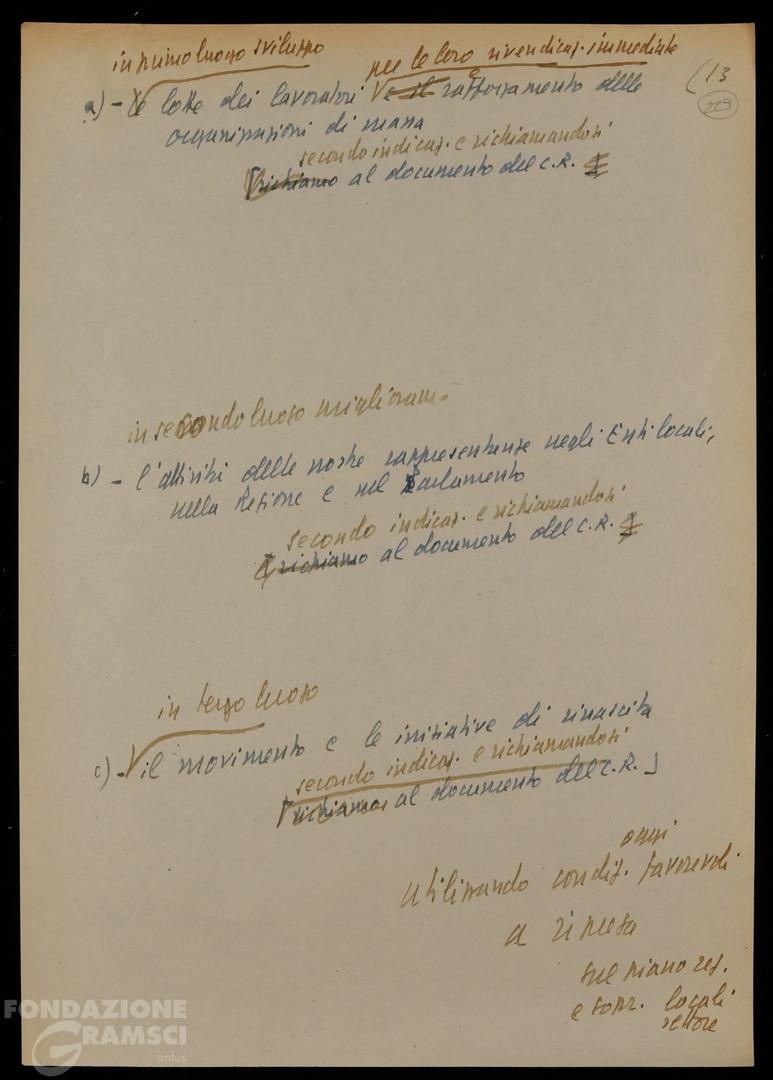 in primo luogo sviluppo
per le loro rivendicaz. immediate
(13
229
a) - le lotte dei lavoratori e il rafforzamento delle
organizzazioni di massa
secondo indicaz. e richiamandosi
[richiamo al documento del C.R.]
in secondo luogo miglioram.
b) - l'attività delle nostre rappresentanze negli Enti locali,
nella Regione e nel Parlamento
secondo indicaz. e richiamandosi
[richiamo al documento del C.R.]
in terzo luogo
c) - il movimento e le iniziative di rinascita
secondo indicaz. e richiamandosi
[richiamo al documento del C.R.]
ogni
utilizzando condiz. favorevoli
a ripresa
sul piano reg.
e sopr. locali
settore
FONDAZIONE
GRAMSCI
onlus